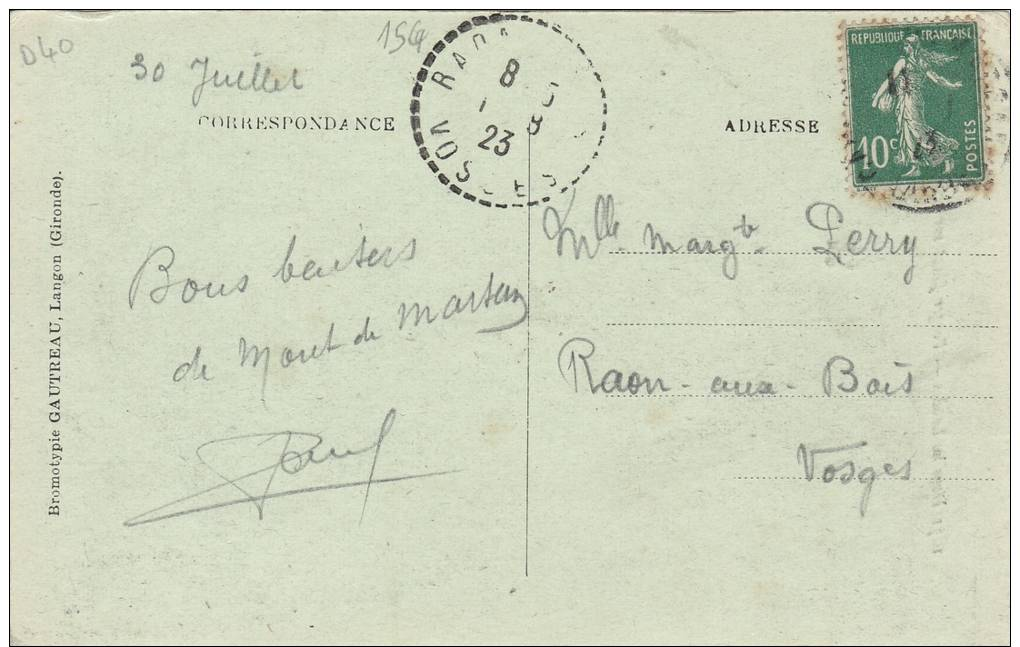 D40
154
30 Juillet
CORRESPONDANCE
Bons baisers
de Mont de Marsan
Paul
Bromotypie GAUTREAU, Langon (Gironde).
RAON
8
23
VOSGES
ADRESSE
RÉPUBLIQUE FRANÇAISE
10c
POSTES
Mlle Margte Perry
Raon-aux-Bois
Vosges